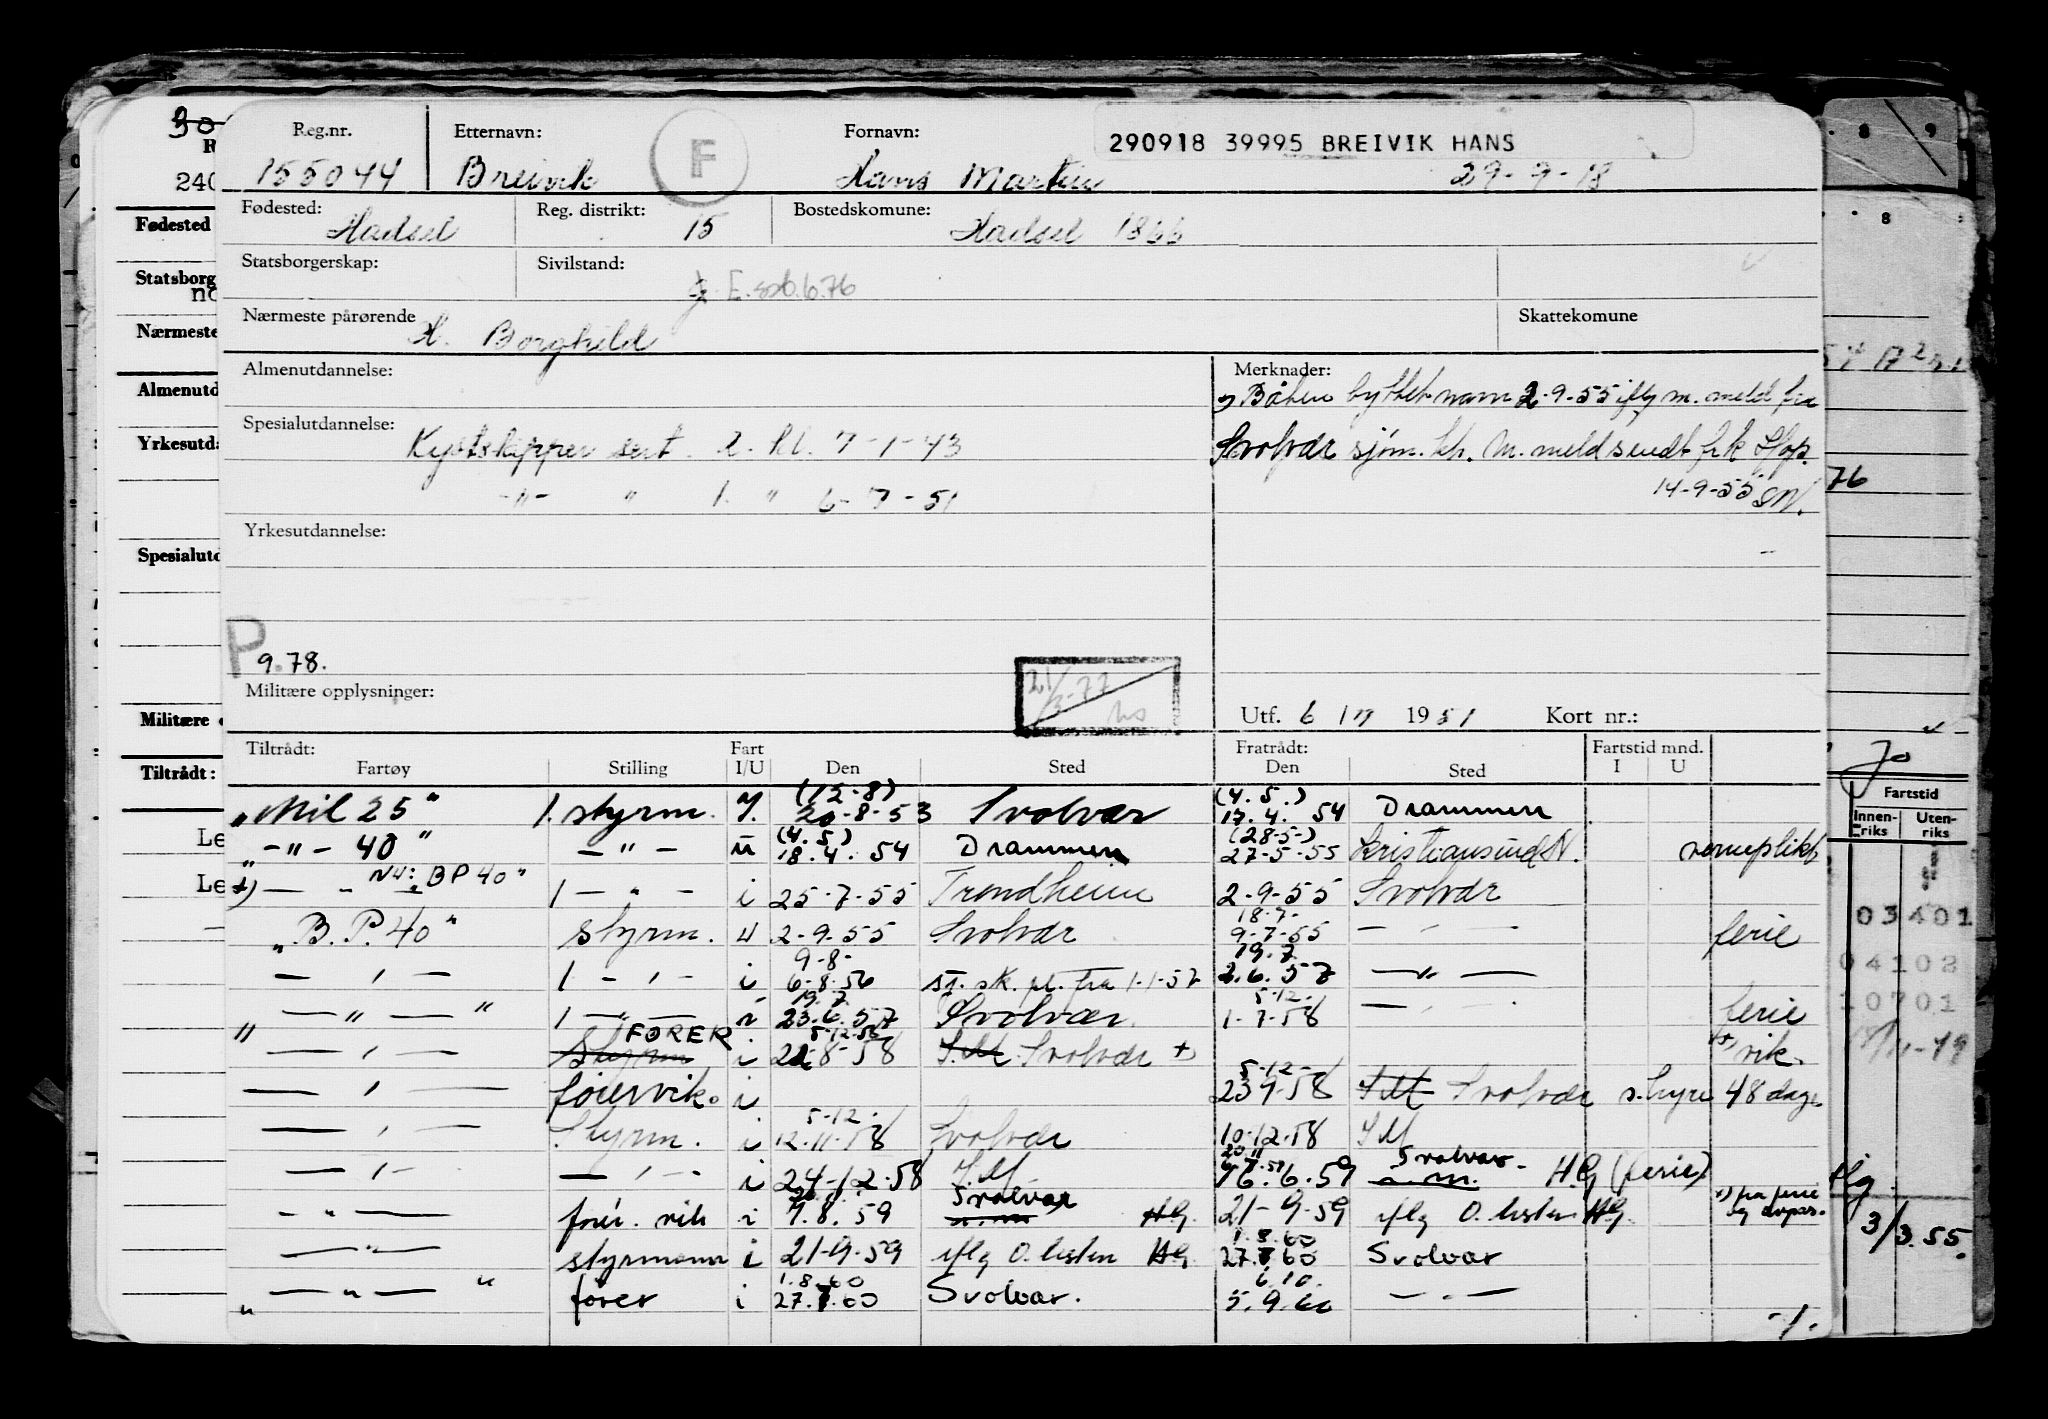 Reg.nr. Etternavn: F Fornavn: 290918 39995 BREIVIK HANS
155044 Breivik Hans Martin 29-9-18
Fødested: Hadsel Reg. distrikt: 15 Bostedskomune: Hadsel 1866
Statsborgerskap: Sivilstand:
Nærmeste pårørende H. Borghild Skattekomune
Almenutdannelse: Merknader:
Båten byttet navn 2-9-55 iflg m. meld fra
Spesialutdannelse: Kystskipper sert. 2. kl. 7-1-43
Svolvær sjøm. kh. M. meld sendt
-"- " 1. " 6-7-51
14-9-55 SN.
Yrkesutdannelse:
P 9.78.
Militære opplysninger: 21/3-77
Utf. 6 / 7 1951 Kort nr.:
Tiltrådt: Fart Fratrådt: Fartstid mnd.
Fartøy Stilling I/U Den Sted Den Sted I U
(12-8) (4.5.)
"Mil 25" 1. styrm. 20-8-53 Svolvær 17.4. 54 Drammen
(4.5) (28-5-)
-"- 40" -"- 18.4. 54 Drammen 27-5-55 Kristiansund N.
BP 40" 1 -"- i 25-7-55 Trondheim 2-9-55 Svolvær
18-7-
"B.P. 40" styrm. 2-9-55 Svolvær 9-7-55 -"- ferie
9-8- 19.7
-"- 1 -"- i 6-8-56 sj. sk. pl. fra 1-1-57 2.6.57 -"-
19.7 5-12-
-"- 1 -"- 23.6.57 Svolvær 1-7-58 -"- ferie
FØRER 5-12-58
-"- Styrm i 22-8-58 Svolvær +) +) vik.
5-12-
-"- førervik. i 23 9-58 Svolvær styrm 48 dage
5-12-
-"- Styrm. i 12-11-58 Svolvær 10-12-58
-"- -"- i 24-12-58 16.6.59 Svolvær HG (ferie)
-"- fører. vik i 7.8.59 Svolvær HG. 21-9-59 iflg O. listen HG.
+) fra ferie og avspas.
1.8.60
-"- styrmann i 21-9-59 iflg O. listen HG 27.7 60 Svolvær
1.8.60 6.10.
-"- fører i 27.7.60 Svolvær. 5.9.60 -"-
Fødested
Nærmeste
Militære
Tiltrådt:
Le
Le
76
Fartstid
Innen-riks Uten-riks
03401
04102
10701
3/3.55.